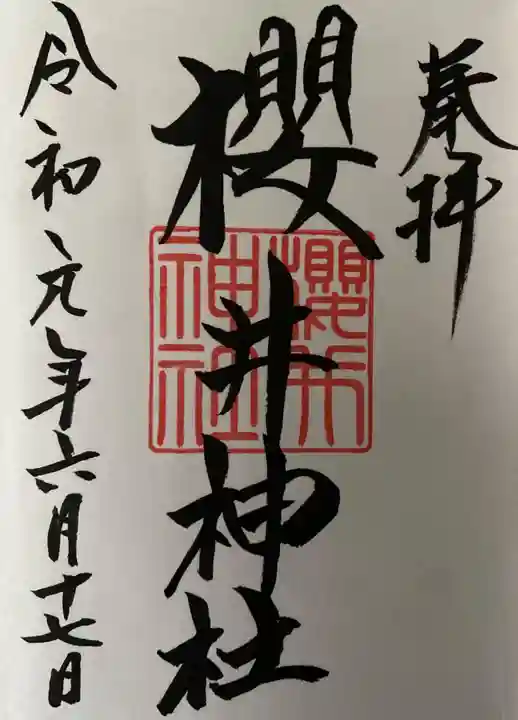 奉拝
櫻井神社
櫻井神社
令初元年六月十七日